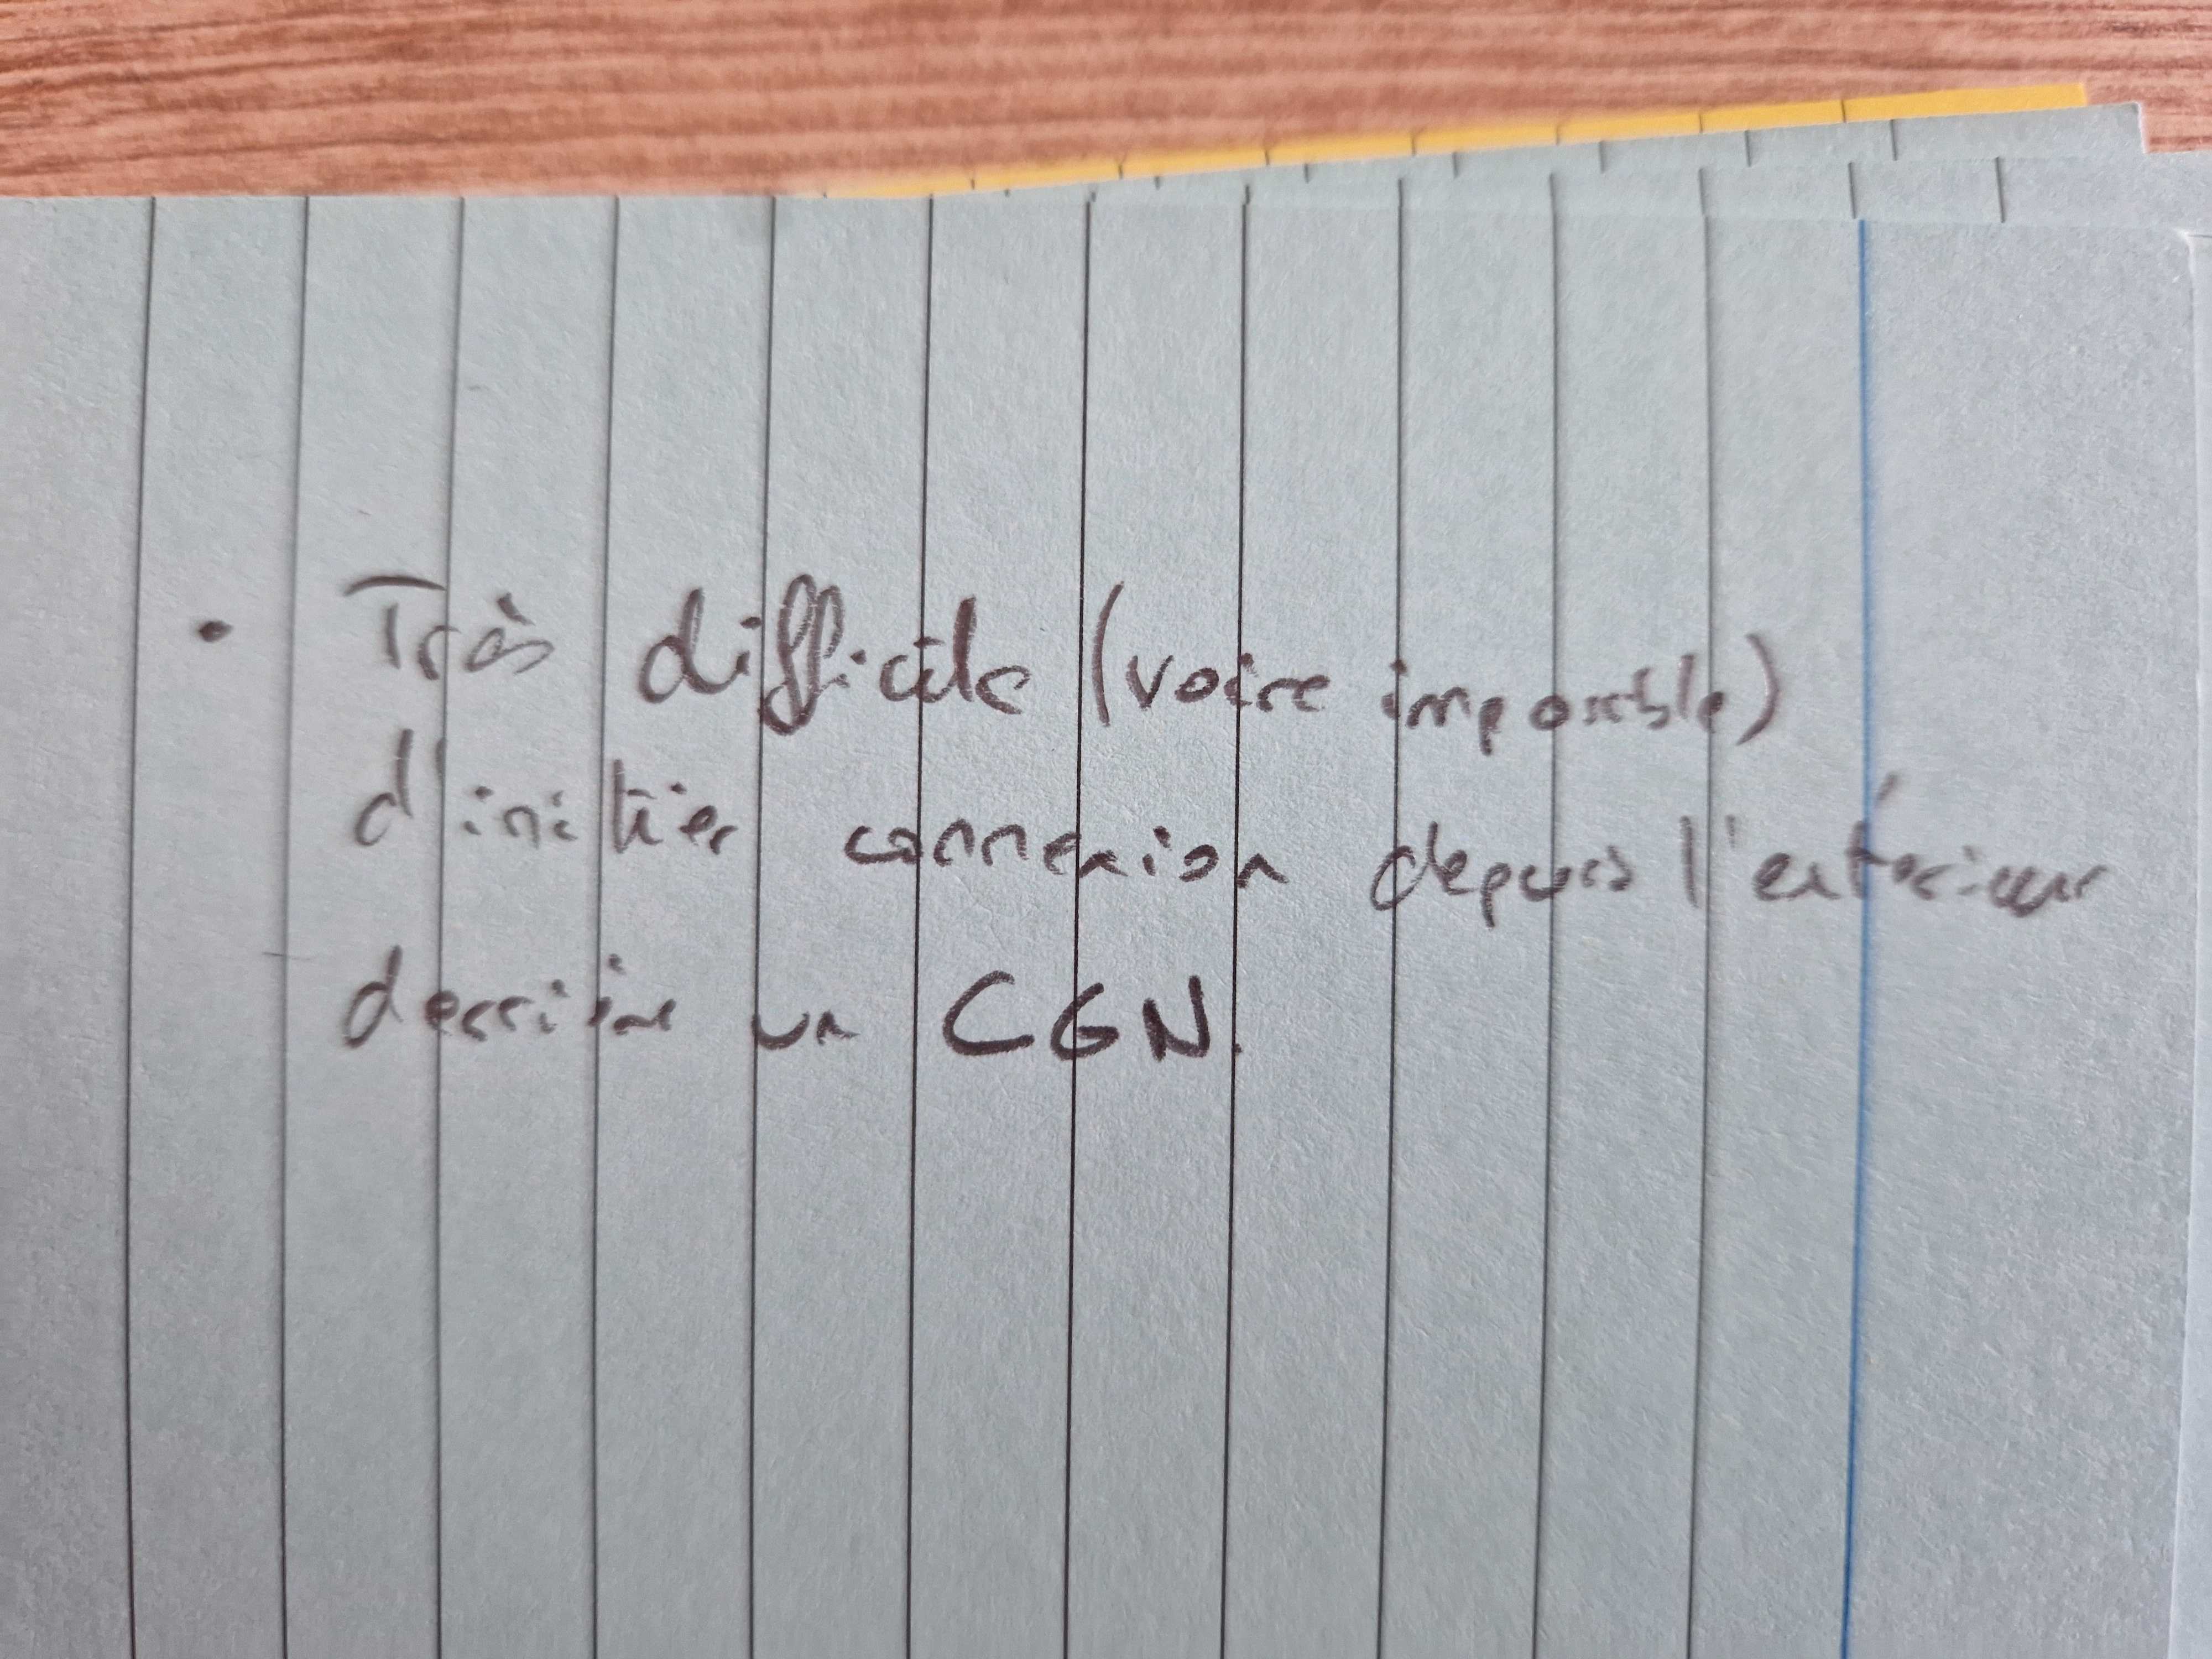 • Très difficile (voire impossible)
d'initier connexion depuis l'extérieur
derrière un CGN.